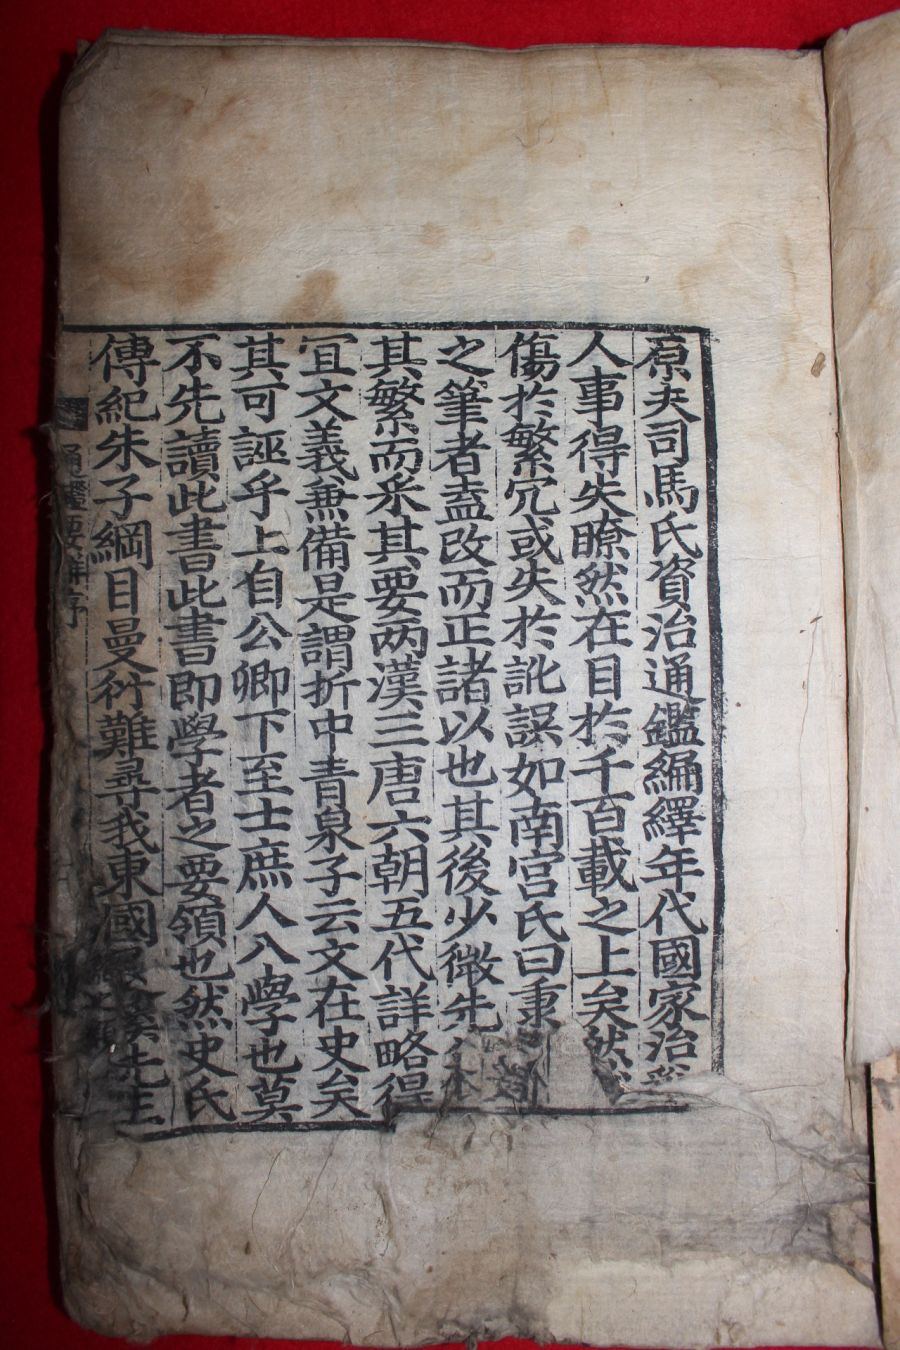 原夫司馬氏資治通鑑編繹年代國家治
人事得失瞭然在目於千百載之上矣然
傷於繁冗或失於訛誤如南宮氏曰秉
之筆者盍改而正諸以也其後少微先
其繁而采其要两漢三唐六朝五代詳略得
冝文義兼備是謂折中青泉子云文在史矣
其可誣乎上自公卿下至士庶人八學也莫
不先讀此書此書即學者之要領也然史氏
傳紀朱子綱目曼衍難尋我東國溪先生
通鑑要觧序